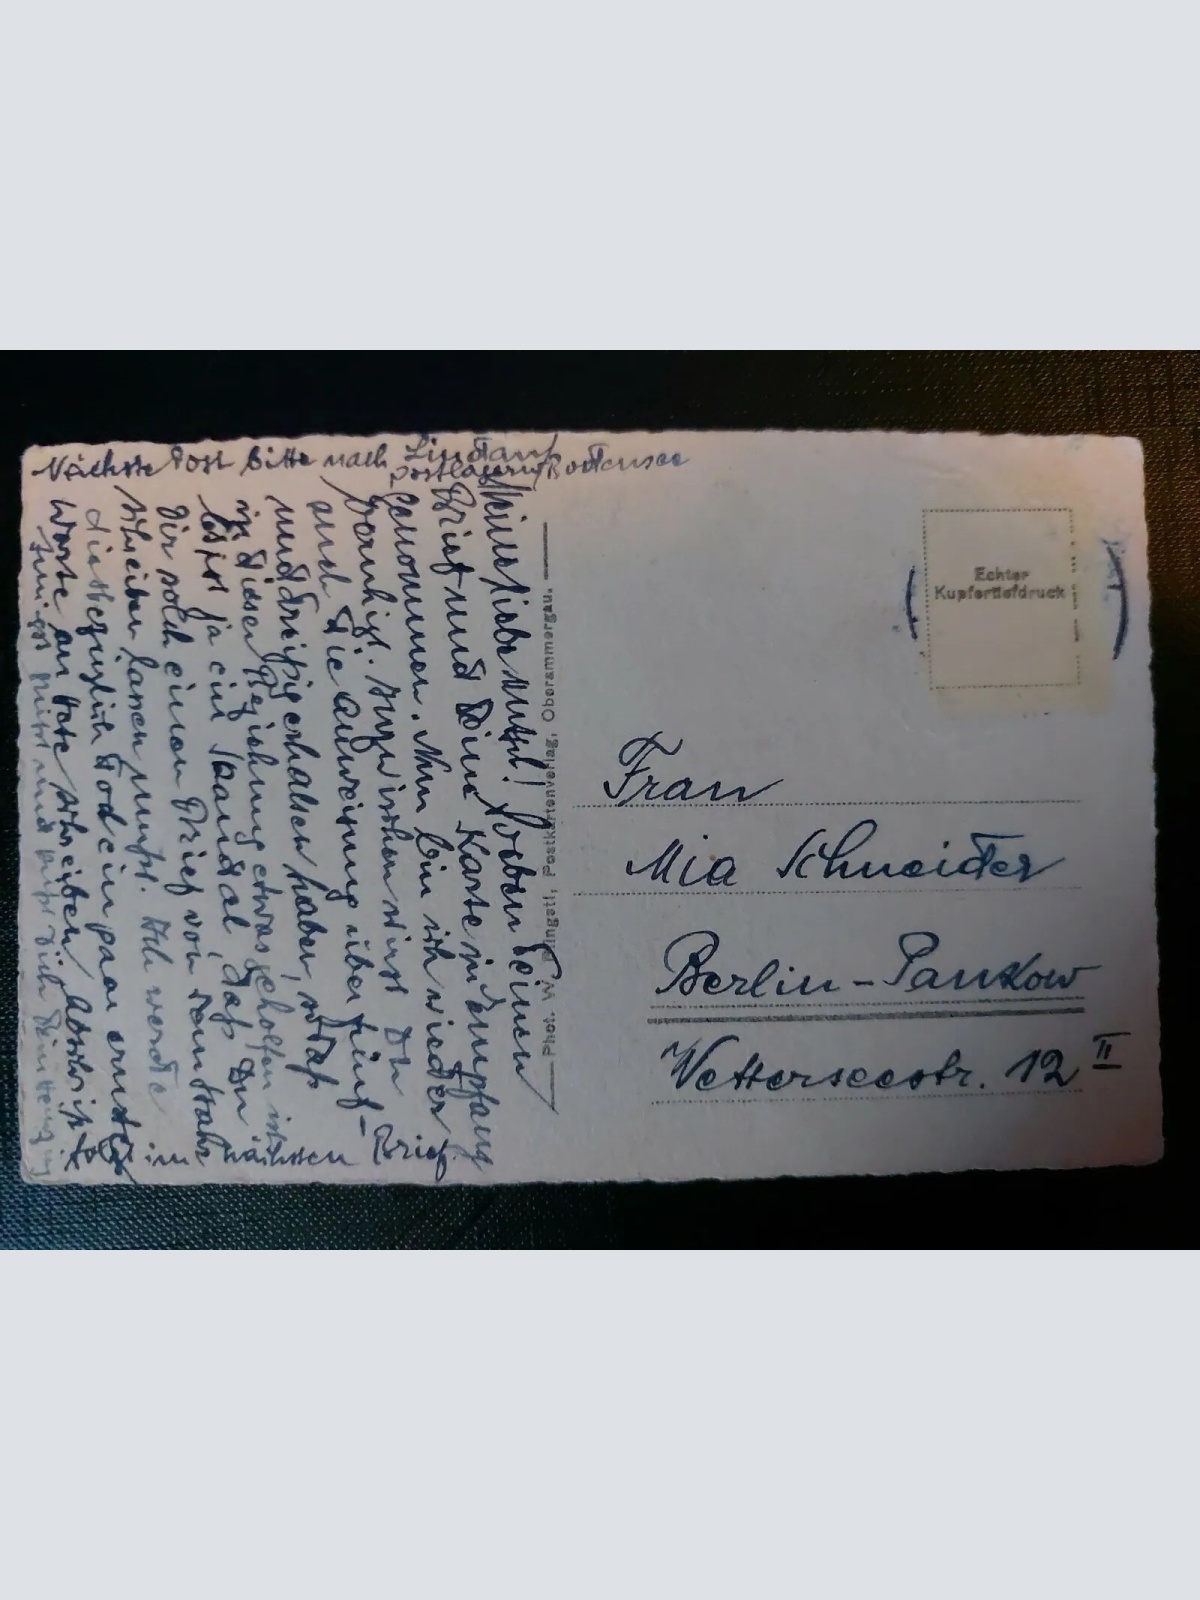 Nächste Post bitte nach Lindau
postlagernd Bodensee
Meine liebe Mutzi! Soeben Deinen
Brief und Deine Karte in Empfang
genommen. Nun bin ich wieder
beruhigt. Inzwischen wirst Du
auch die Anweisung über fünf-
unddreißig erhalten haben, sodaß
in dieser Beziehung etwas geholfen ist.
Es ist ja ein Skandal, daß Du
Dir solch einen Brief von
schreiben lassen mußt. Ich werde
diesbezüglich ein paar ernste
Worte an schreiben. Abschrift
folgt im nächsten Brief.
Innigst grüßt und küßt Dich Dein
Phot. Postkartenverlag, Oberammergau.
Echter
Kupfertiefdruck
Frau
Mia Schneider
Berlin-Pankow
Wetterseestr. 12 II